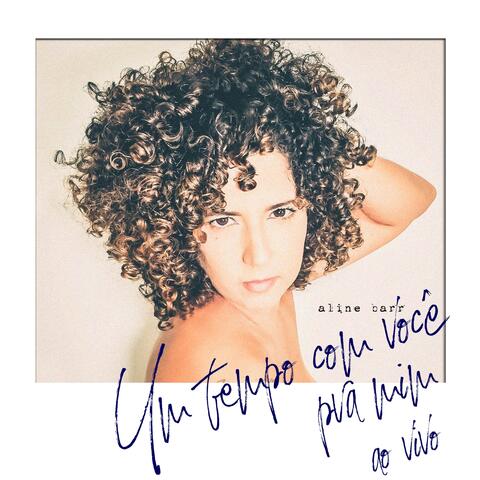 aline barr
Um tempo com você
prá mim
ao vivo